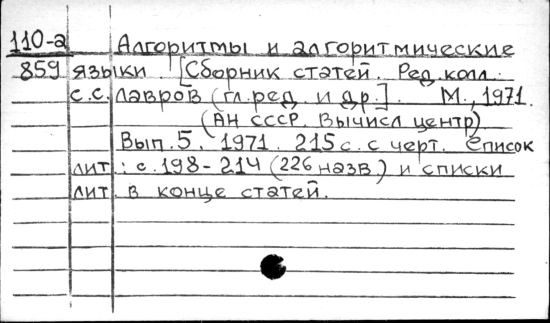 110-а Алгоритмы и алгоритмические
859 языки. [Сборник статей. Ред. колл.:
с.с. Лавров (гл.ред. и др.]. М., 1971.
(АН СССР. Вычисл центр)
Вып. 5. 1971. 215 с. с черт. Список
лит.: с. 198-214 (226 назв.) и списки
лит. в конце статей.